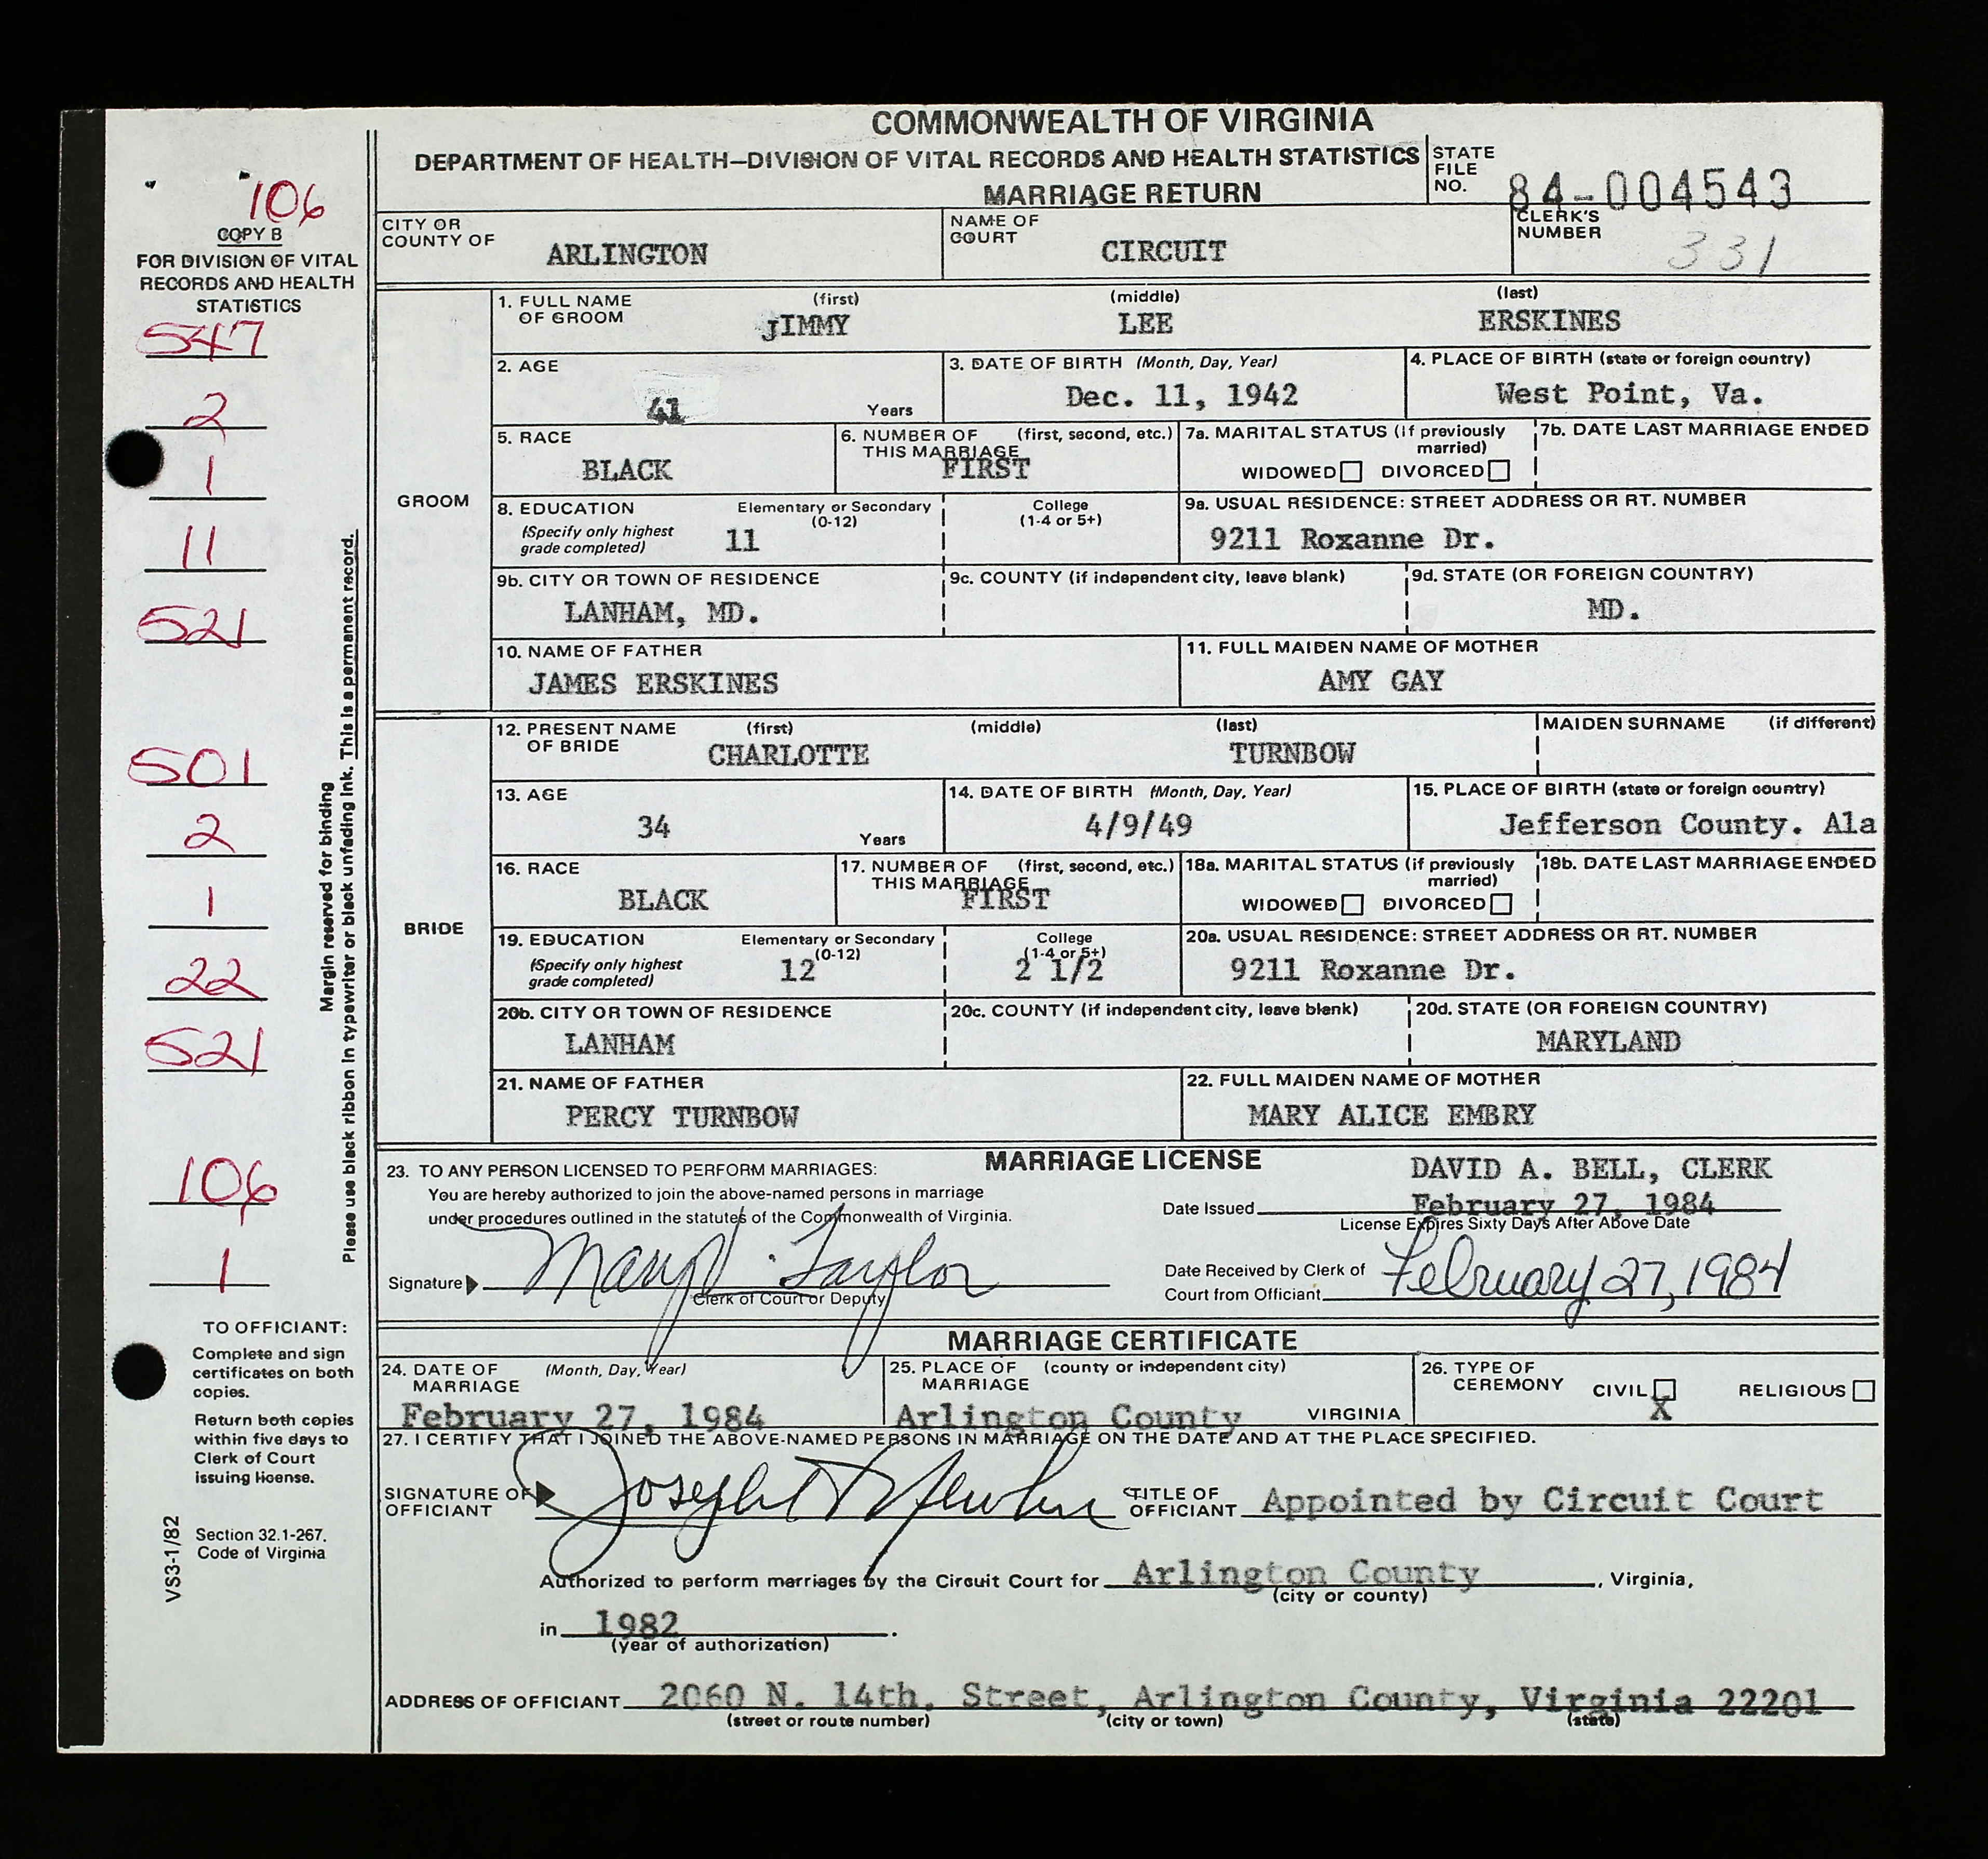 COMMONWEALTH OF VIRGINIA
DEPARTMENT OF HEALTH—DIVISION OF VITAL RECORDS AND HEALTH STATISTICS
MARRIAGE RETURN
STATE FILE NO. 84-004543
106
COPY B
FOR DIVISION OF VITAL
RECORDS AND HEALTH
STATISTICS
547
2
1
11
521
501
2
1
22
521
106
1
Margin reserved for binding
Please use black ribbon in typewriter or black unfading ink. This is a permanent record.
TO OFFICIANT:
Complete and sign
certificates on both
copies.
Return both copies
within five days to
Clerk of Court
issuing license.
Section 32.1-267,
Code of Virginia
VS3-1/82
CITY OR COUNTY OF ARLINGTON
NAME OF COURT CIRCUIT
CLERK'S NUMBER 331
GROOM
1. FULL NAME OF GROOM (first) (middle) (last)
JIMMY LEE ERSKINES
2. AGE 41 Years
3. DATE OF BIRTH (Month, Day, Year) Dec. 11, 1942
4. PLACE OF BIRTH (state or foreign country) West Point, Va.
5. RACE BLACK
6. NUMBER OF THIS MARRIAGE (first, second, etc.) FIRST
7a. MARITAL STATUS (if previously married) WIDOWED DIVORCED
7b. DATE LAST MARRIAGE ENDED
8. EDUCATION (Specify only highest grade completed) Elementary or Secondary (0-12) 11
College (1-4 or 5+)
9a. USUAL RESIDENCE: STREET ADDRESS OR RT. NUMBER 9211 Roxanne Dr.
9b. CITY OR TOWN OF RESIDENCE LANHAM, MD.
9c. COUNTY (if independent city, leave blank)
9d. STATE (OR FOREIGN COUNTRY) MD.
10. NAME OF FATHER JAMES ERSKINES
11. FULL MAIDEN NAME OF MOTHER AMY GAY
BRIDE
12. PRESENT NAME OF BRIDE (first) (middle) (last) MAIDEN SURNAME (if different)
CHARLOTTE TURNBOW
13. AGE 34 Years
14. DATE OF BIRTH (Month, Day, Year) 4/9/49
15. PLACE OF BIRTH (state or foreign country) Jefferson County. Ala
16. RACE BLACK
17. NUMBER OF THIS MARRIAGE (first, second, etc.) FIRST
18a. MARITAL STATUS (if previously married) WIDOWED DIVORCED
18b. DATE LAST MARRIAGE ENDED
19. EDUCATION (Specify only highest grade completed) Elementary or Secondary (0-12) 12
College (1-4 or 5+) 2 1/2
20a. USUAL RESIDENCE: STREET ADDRESS OR RT. NUMBER 9211 Roxanne Dr.
20b. CITY OR TOWN OF RESIDENCE LANHAM
20c. COUNTY (if independent city, leave blank)
20d. STATE (OR FOREIGN COUNTRY) MARYLAND
21. NAME OF FATHER PERCY TURNBOW
22. FULL MAIDEN NAME OF MOTHER MARY ALICE EMBRY
MARRIAGE LICENSE
23. TO ANY PERSON LICENSED TO PERFORM MARRIAGES:
You are hereby authorized to join the above-named persons in marriage
under procedures outlined in the statutes of the Commonwealth of Virginia.
DAVID A. BELL, CLERK
Date Issued February 27, 1984
License Expires Sixty Days After Above Date
Signature Mary Taylor
Clerk of Court or Deputy
Date Received by Clerk of
Court from Officiant February 27, 1984
MARRIAGE CERTIFICATE
24. DATE OF MARRIAGE (Month, Day, Year) February 27, 1984
25. PLACE OF MARRIAGE (county or independent city) Arlington County VIRGINIA
26. TYPE OF CEREMONY CIVIL X RELIGIOUS
27. I CERTIFY THAT I JOINED THE ABOVE-NAMED PERSONS IN MARRIAGE ON THE DATE AND AT THE PLACE SPECIFIED.
SIGNATURE OF OFFICIANT Joseph
TITLE OF OFFICIANT Appointed by Circuit Court
Authorized to perform marriages by the Circuit Court for Arlington County, Virginia,
(city or county)
in 1982.
(year of authorization)
ADDRESS OF OFFICIANT 2060 N. 14th. Street, Arlington County, Virginia 22201
(street or route number) (city or town) (state)